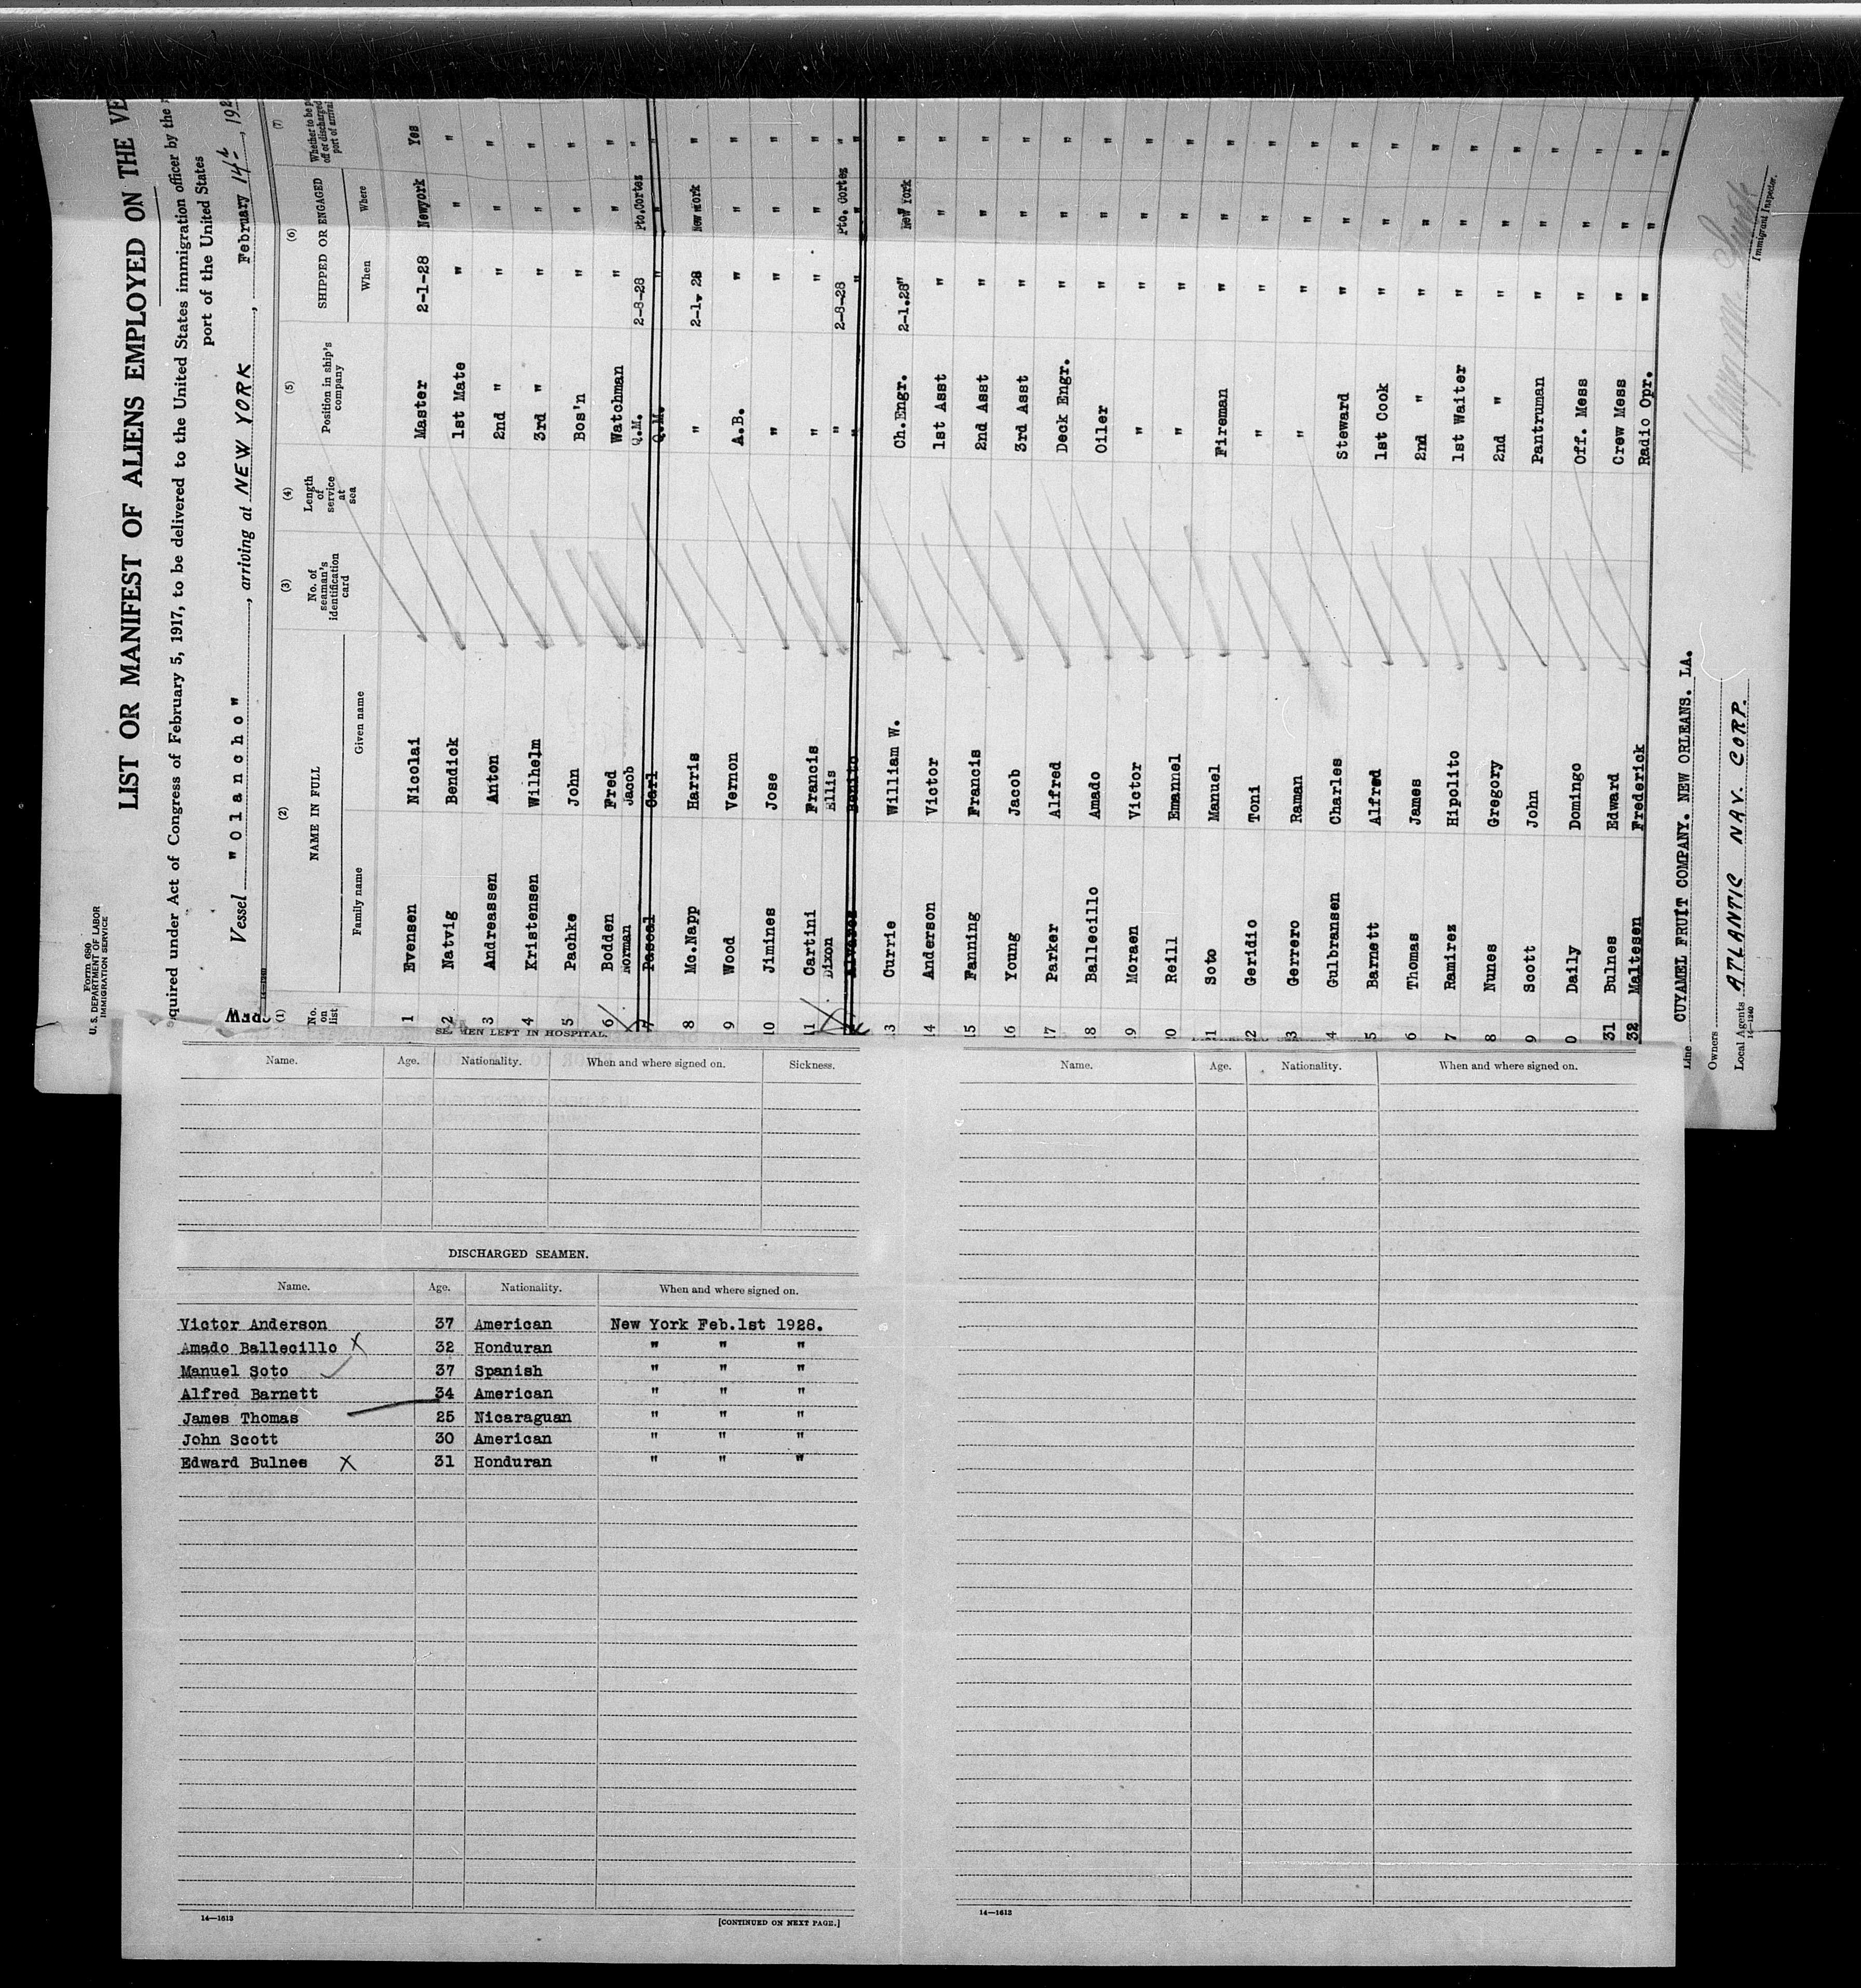 Form 680
U. S. DEPARTMENT OF LABOR
IMMIGRATION SERVICE
LIST OR MANIFEST OF ALIENS EMPLOYED ON THE VE
quired under Act of Congress of February 5, 1917, to be delivered to the United States immigration officer by the
port of the United States
Vessel "Olancho", arriving at NEW YORK, February 14th, 192
(1) (2) (3) (4) (5) (6) (7)
No. on list NAME IN FULL No. of seaman's identification card Length of service at sea Position in ship's company SHIPPED OR ENGAGED Whether to be p off or discharged port of arrival
Family name Given name When Where
1 Evensen Nicolai Master 2-1-28 Newyork Yes
2 Natvig Bendick 1st Mate " " "
3 Andreassen Anton 2nd " " " "
4 Kristensen Wilhelm 3rd " " " "
5 Pachke John Bos'n " " "
6 Bodden Fred Watchman " " "
Norman Jacob Q.M. 2-8-28 Pto.Cortez "
7 Pascal Carl Q.M. " " "
8 Mc.Napp Harris " 2-1- 28 New York "
9 Wood Vernon A.B. " " "
10 Jimines Jose " " " "
11 Cartini Francis " " " "
Dixon Ellis " 2-8-28 Pto. Cortez "
Alvarez Benito " " " "
13 Currie William W. Ch.Engr. 2-1.28" New York "
14 Anderson Victor 1st Asst " " "
15 Fanning Francis 2nd Asst " " "
16 Young Jacob 3rd Asst " " "
17 Parker Alfred Deck Engr. " " "
18 Ballecillo Amado Oiler " " "
19 Moraen Victor " " " "
20 Reill Emannel " " " "
11 Soto Manuel Fireman " " "
12 Geridio Toni " " " "
13 Gerrero Raman " " " "
4 Gulbransen Charles Steward " " "
5 Barnett Alfred 1st Cook " " "
6 Thomas James 2nd " " " "
7 Ramirez Hipolito 1st Waiter " " "
8 Nunes Gregory 2nd " " " "
9 Scott John Pantruman " " "
0 Daily Domingo Off. Mess " " "
31 Bulnes Edward Crew Mess " " "
32 Maltesen Frederick Radio Opr. " " "
Line CUYAMEL FRUIT COMPANY. NEW ORLEANS. LA.
Owners
Local Agents ATLANTIC NAV. CORP.
14-1240
Immigrant Inspector.
SEAMEN LEFT IN HOSPITAL.
Name. Age. Nationality. When and where signed on. Sickness.
DISCHARGED SEAMEN.
Name. Age. Nationality. When and where signed on.
Victor Anderson 37 American New York Feb.1st 1928.
Amado Ballecillo X 32 Honduran " " "
Manuel Soto 37 Spanish " " "
Alfred Barnett 34 American " " "
James Thomas 25 Nicaraguan " " "
John Scott 30 American " " "
Edward Bulnes X 31 Honduran " " "
14—1613 [CONTINUED ON NEXT PAGE.]
Name. Age. Nationality. When and where signed on.
14—1613